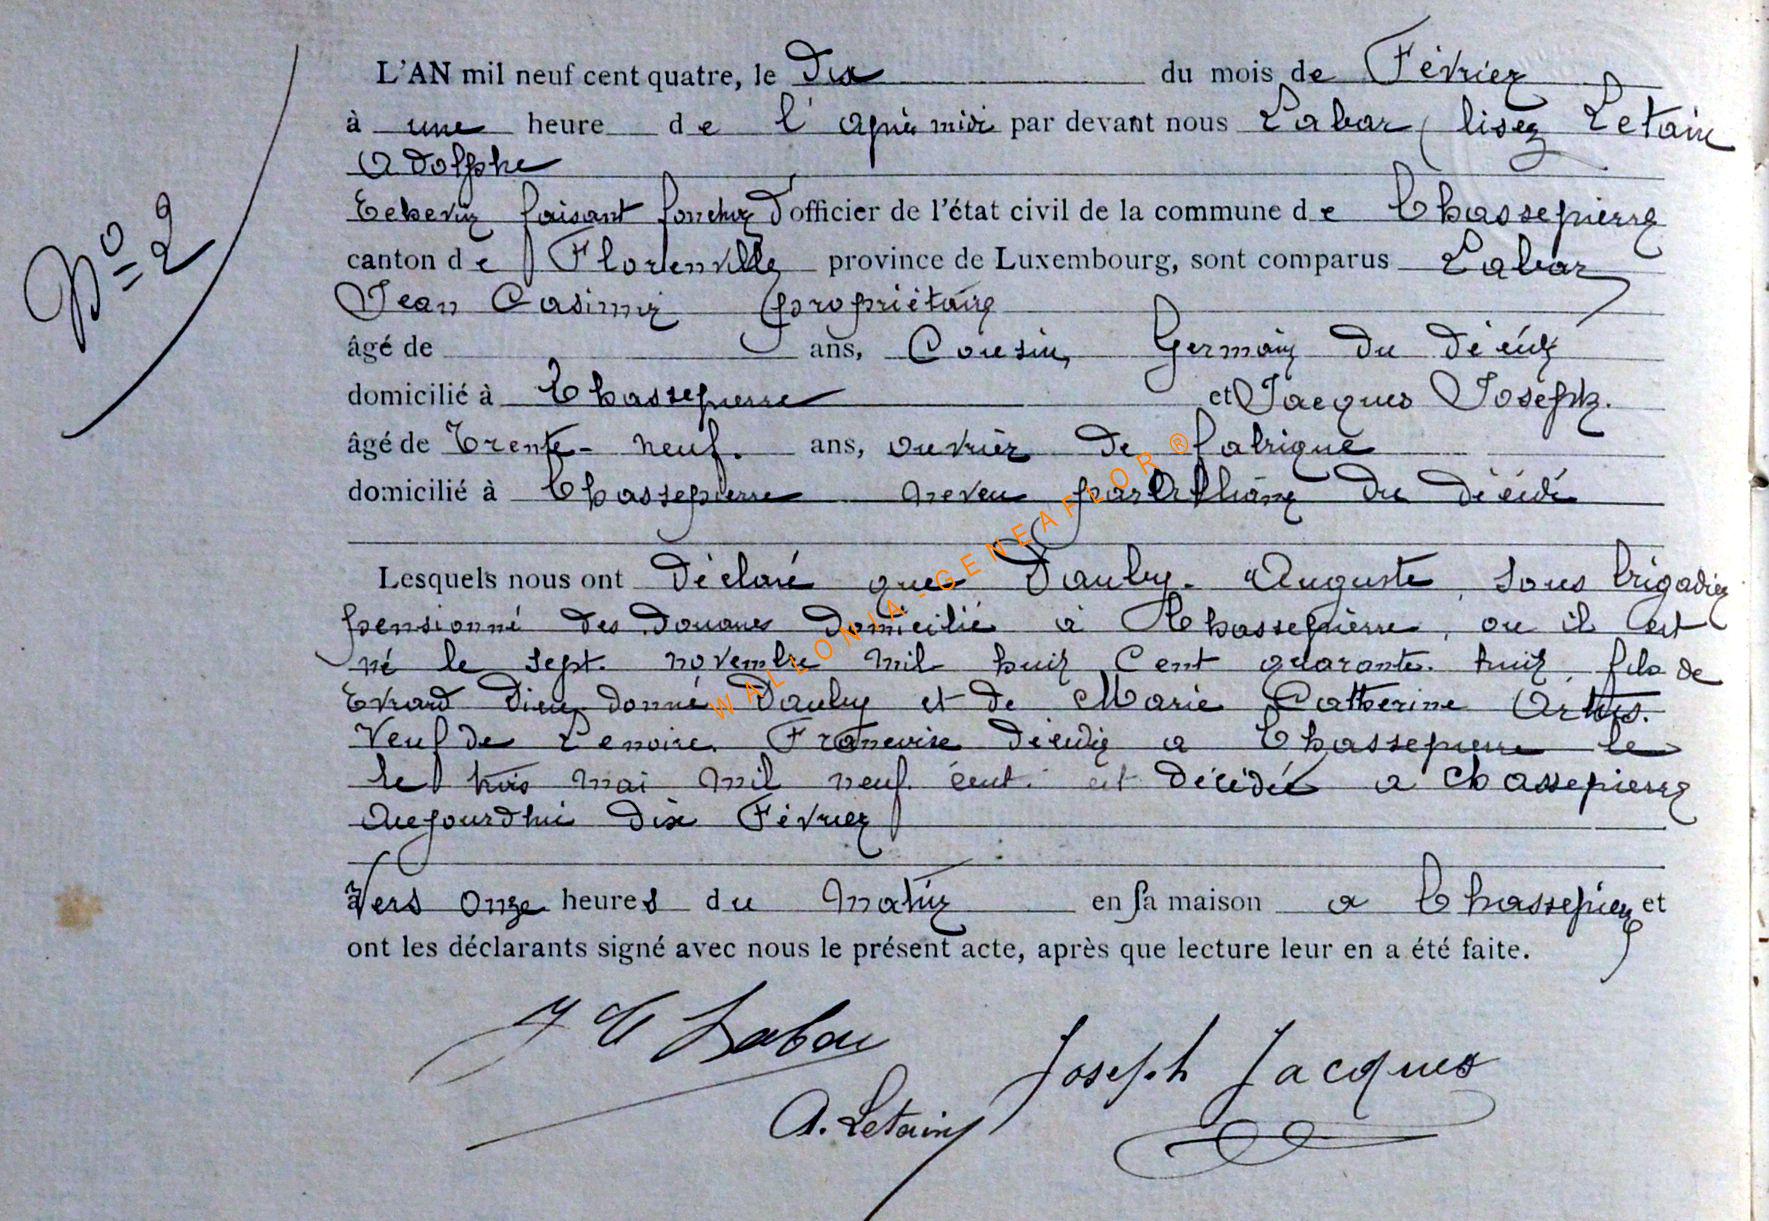 No 2
L'AN mil neuf cent quatre, le Dix du mois de Février
à une heure de l'après midi par devant nous Labar, lisez Letain
Adolphe
Echevin faisant fonctions d'officier de l'état civil de la commune de Chassepierre
canton de Florenville province de Luxembourg, sont comparus Labar
Jean Casimir propriétaire
âgé de ans, Cousin Germain du décédé
domicilié à Chassepierre et Jacques Joseph.
âgé de Trente-neuf. ans, ouvrier de fabrique
domicilié à Chassepierre neveu par alliance du décédé
Lesquels nous ont Déclaré que Dauby Auguste, sous brigadier
pensionné des Douanes Domicilié à Chassepierre, ou il est
né le sept. novembre mil huit cent quarante. huit, fils de
Evrard Dieudonné Dauby et de Marie Catherine Artus.
Veuf de Lenoire Francoise décédée a Chassepierre le
le trois mai mil neuf. cent. est décédé a Chassepierre
Aujourdhui dix Février
Vers onze heures du matin en sa maison a Chassepierre et
ont les déclarants signé avec nous le présent acte, après que lecture leur en a été faite.
J C Labar
Joseph Jacques
A. Letain
WALLONIA-GENEAFLOR®